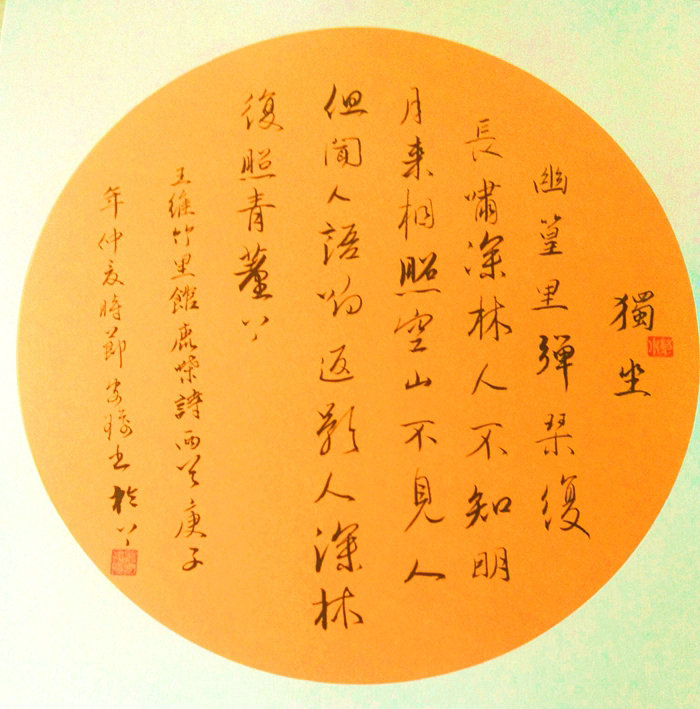 獨坐
幽篁里彈琴復
長嘯深林人不知明
月来相照空山不見人
但聞人語响返影入深林
復照青薹上
王維竹里館鹿柴詩两首庚子
年仲夏時節书於